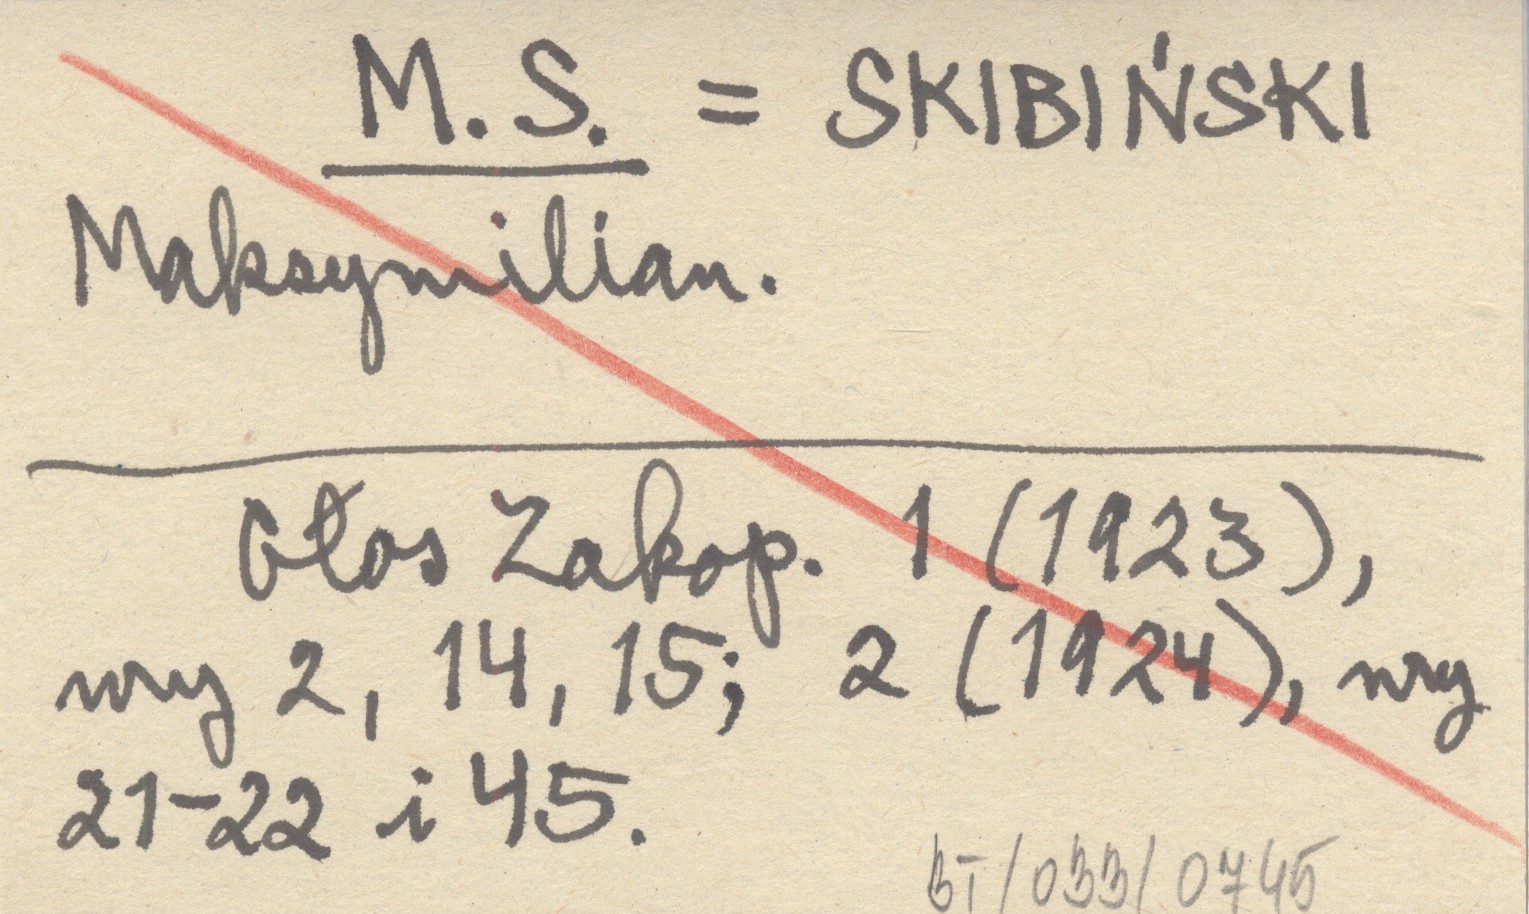 M. S. = SKIBIŃSKI
Maksymilian.
Głos Zakop. 1 (1923),
nry 2, 14, 15; 2 (1924), nry
21-22 i 45.
BT/033/0745